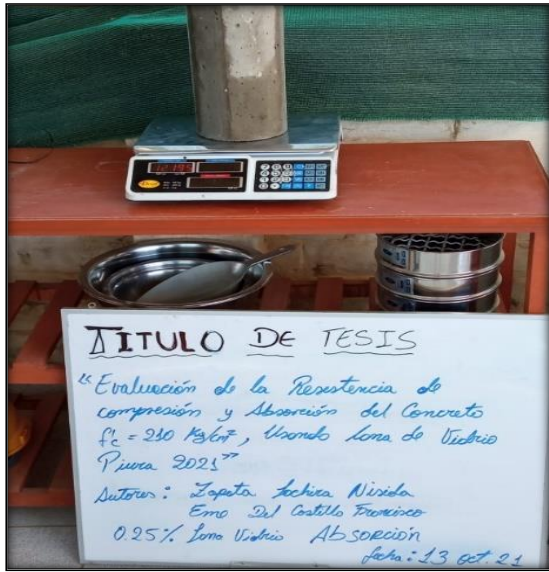 TITULO DE TESIS
"Evaluación de la Resistencia de
compresión y Absorción del Concreto
f'c = 210 Kg/cm², Usando Lana de Vidrio
Piura 2021"
Autores: Zapata Nisida
Emo Del Castillo Francisco
0.25% Lana Vidrio Absorción
fecha: 13 oct. 21